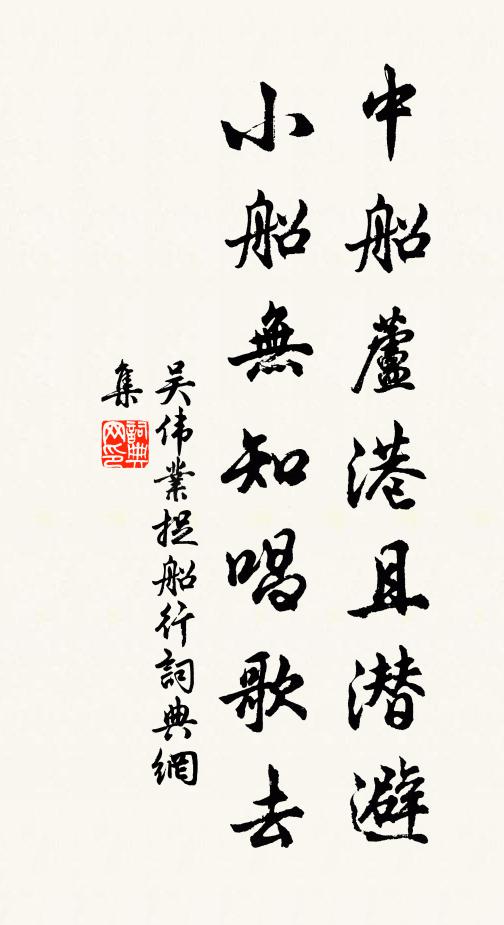 中船蘆港且潜避
小船無知唱歌去
吴伟業捉船行詞典網
集
詞典网印